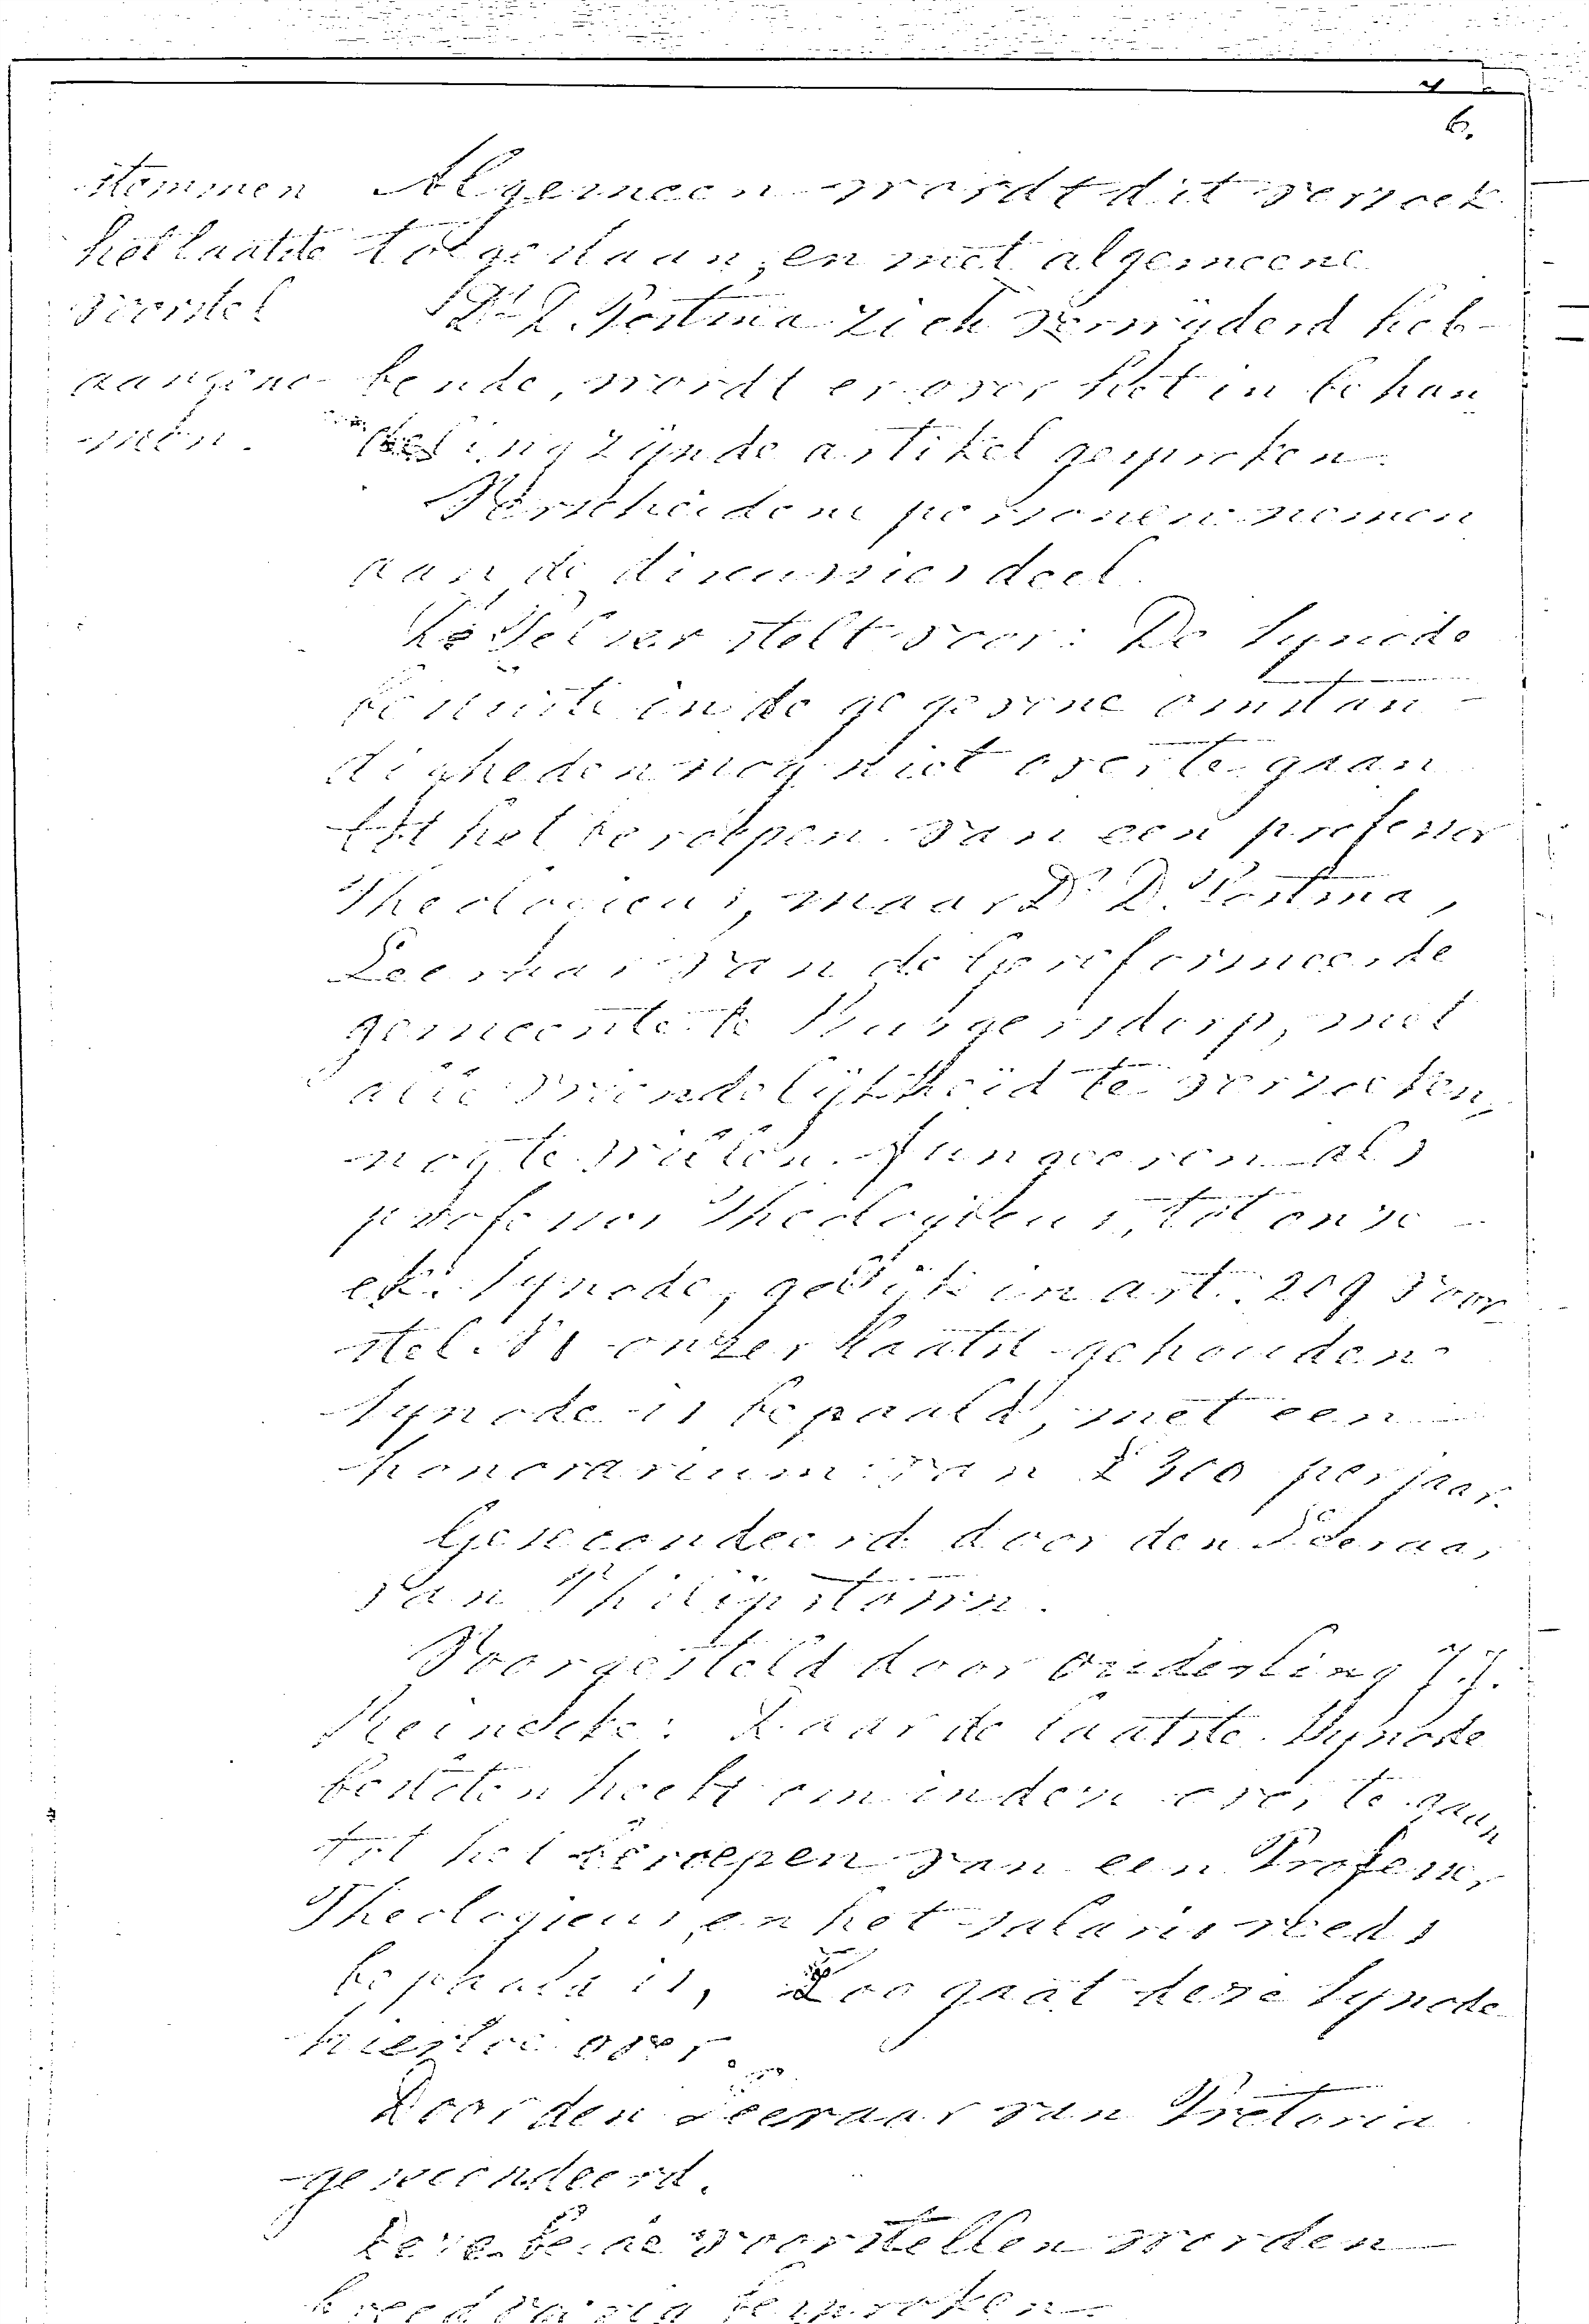 6.
stemmen
het laatste
voorstel
aangeno-
men.
Algemeen wordt dit verzoek
toegestaan, en met algemeene
Ds D. Postma zich verwijderd heb-
bende, wordt er over het in behan
deling zijnde artikel gesproken.
Verscheidene personen nemen
aan de discussies deel.
stelt voor: De Synode
besluite in de gegevene omstan-
digheden nog niet over te gaan
tot het beroepen van een professor
Theologicus, maar Ds D. Postma,
Leeraar van de Gereformeerde
gemeente te Burgersdorp, met
alle vriendelijkheid te verzoeken,
nog te willen fungeeren als
professor Theologicus, tot onze
e.k. Synode, gelijk in art. 209 voor
stel onzer laatst gehouden
Synode is bepaald, met een
honorarium van £300 per jaar.
Gesecondeerd door den Leeraar
van Philipstown.
Voorgesteld door ouderling J.J.
Reinecke: Daar de laatste Synode
besloten heeft om indien over te gaan
tot het beroepen van een Professor
Theologicus en het salaris reeds
bepaald is, Zoo gaat deze Synode
hiertoe over.
Door den Leeraar van Pretoria
gesecondeerd.
Deze beide voorstellen worden
breedvoerig besproken